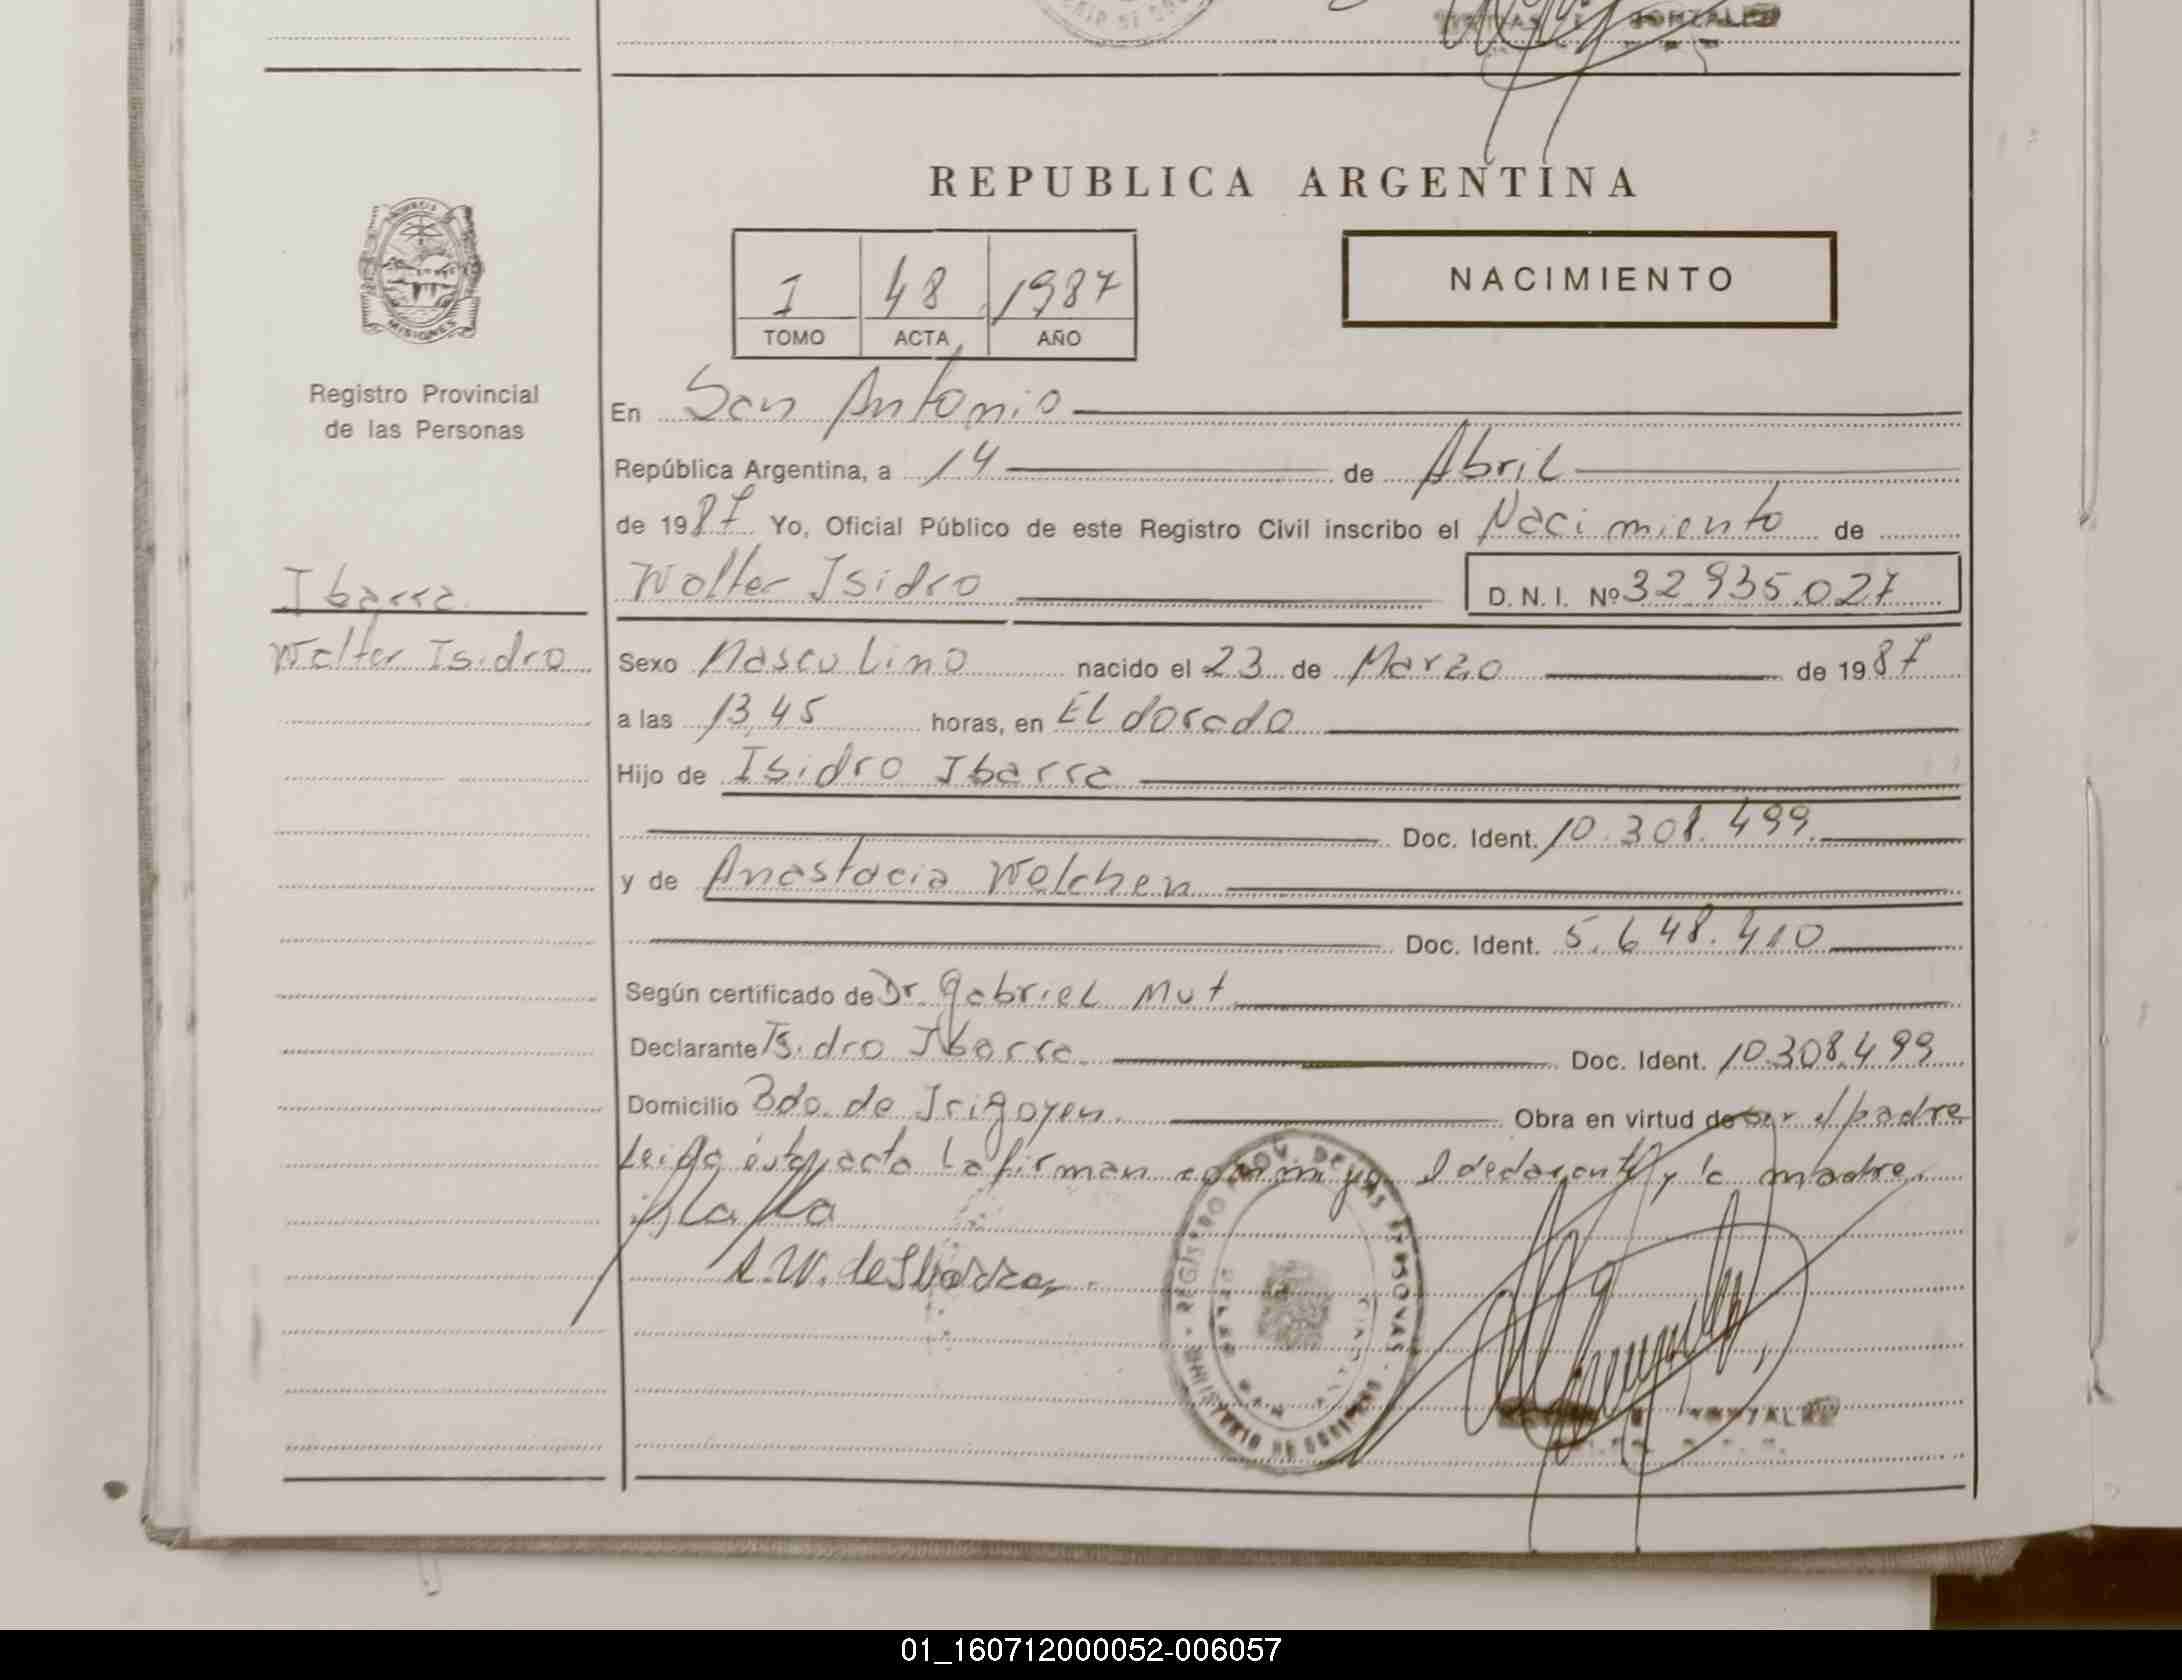 REPUBLICA ARGENTINA
PROVINCIA
MISIONES
I 48 1987
TOMO ACTA AÑO
NACIMIENTO
Registro Provincial
de las Personas
Ibarra
Walter Isidro
En San Antonio
República Argentina, a 14 de Abril
de 1987 Yo, Oficial Público de este Registro Civil inscribo el Nacimiento de
Walter Isidro D.N.I. Nº 32.935.027
Sexo Masculino nacido el 23 de Marzo de 1987
a las 13,45 horas, en El dorado
Hijo de Isidro Ibarra
Doc. Ident. 10.308.499
y de Anastacia Welchen
Doc. Ident. 5.648.410
Según certificado de Dr. Gabriel Mut
Declarante Isidro Ibarra Doc. Ident. 10.308.499
Domicilio Bdo. de Irigoyen Obra en virtud de ser el padre
Leida ésta acta la firman conmigo el declarante y la madre.
A.W. de Ibarra
REGISTRO PROV. DE LAS PERSONAS - MINISTERIO DE GOBIERNO
01_160712000052-006057